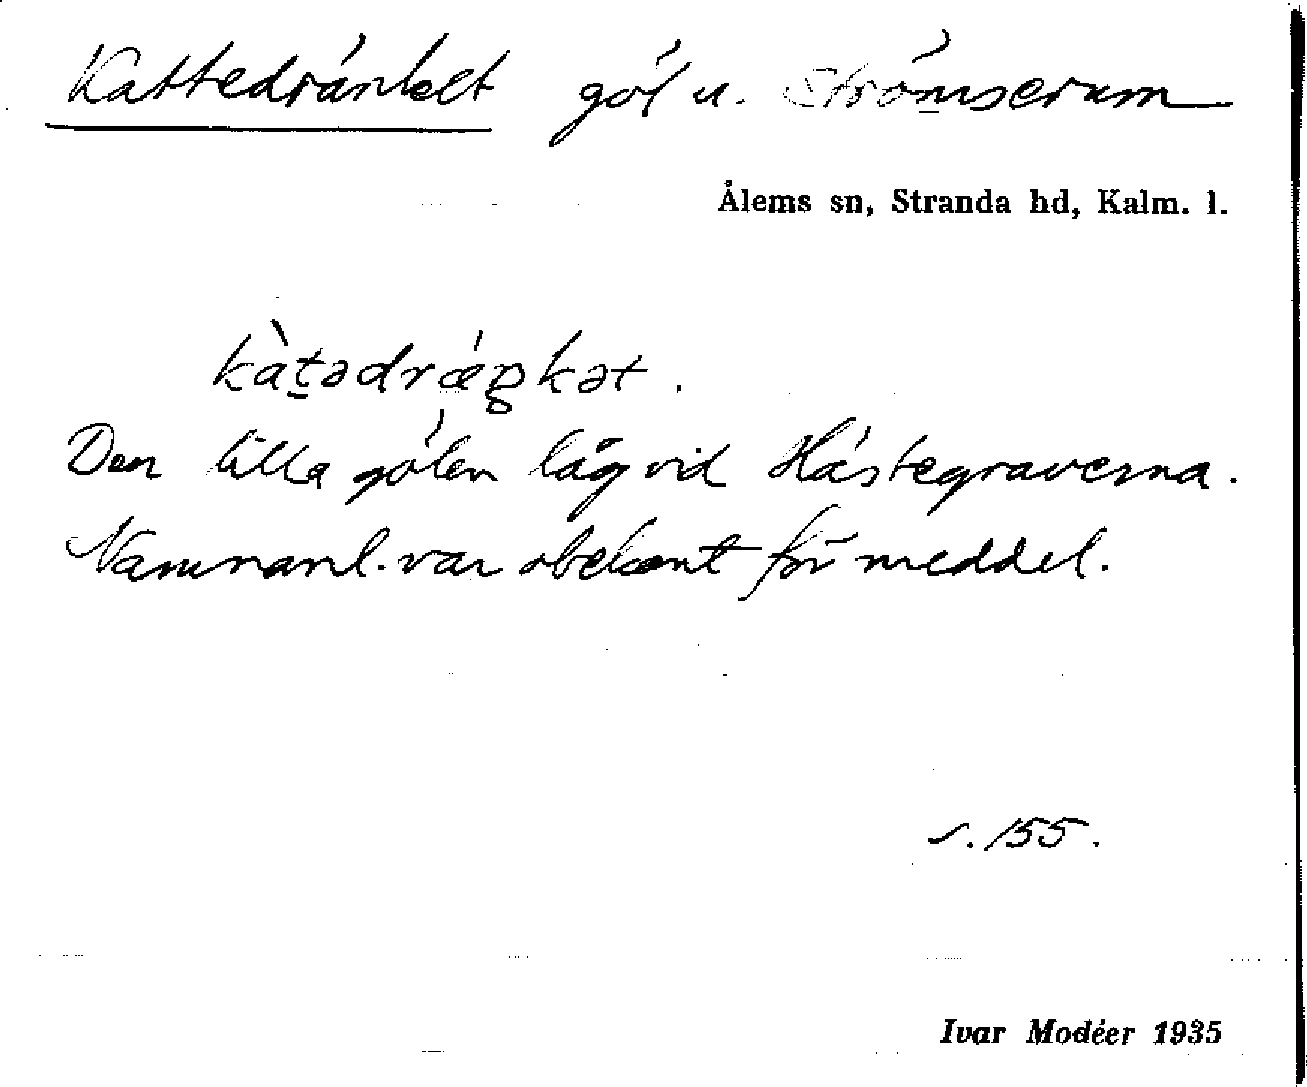 Kattedränket göl u. Strömserum
Ålems sn, Stranda hd, Kalm. l.
kàt̠ədrǽŋkət.
Den lilla gölen låg vid Hästegraverna.
Namnanl. var obekant för meddel.
s. 155.
Ivar Modéer 1935